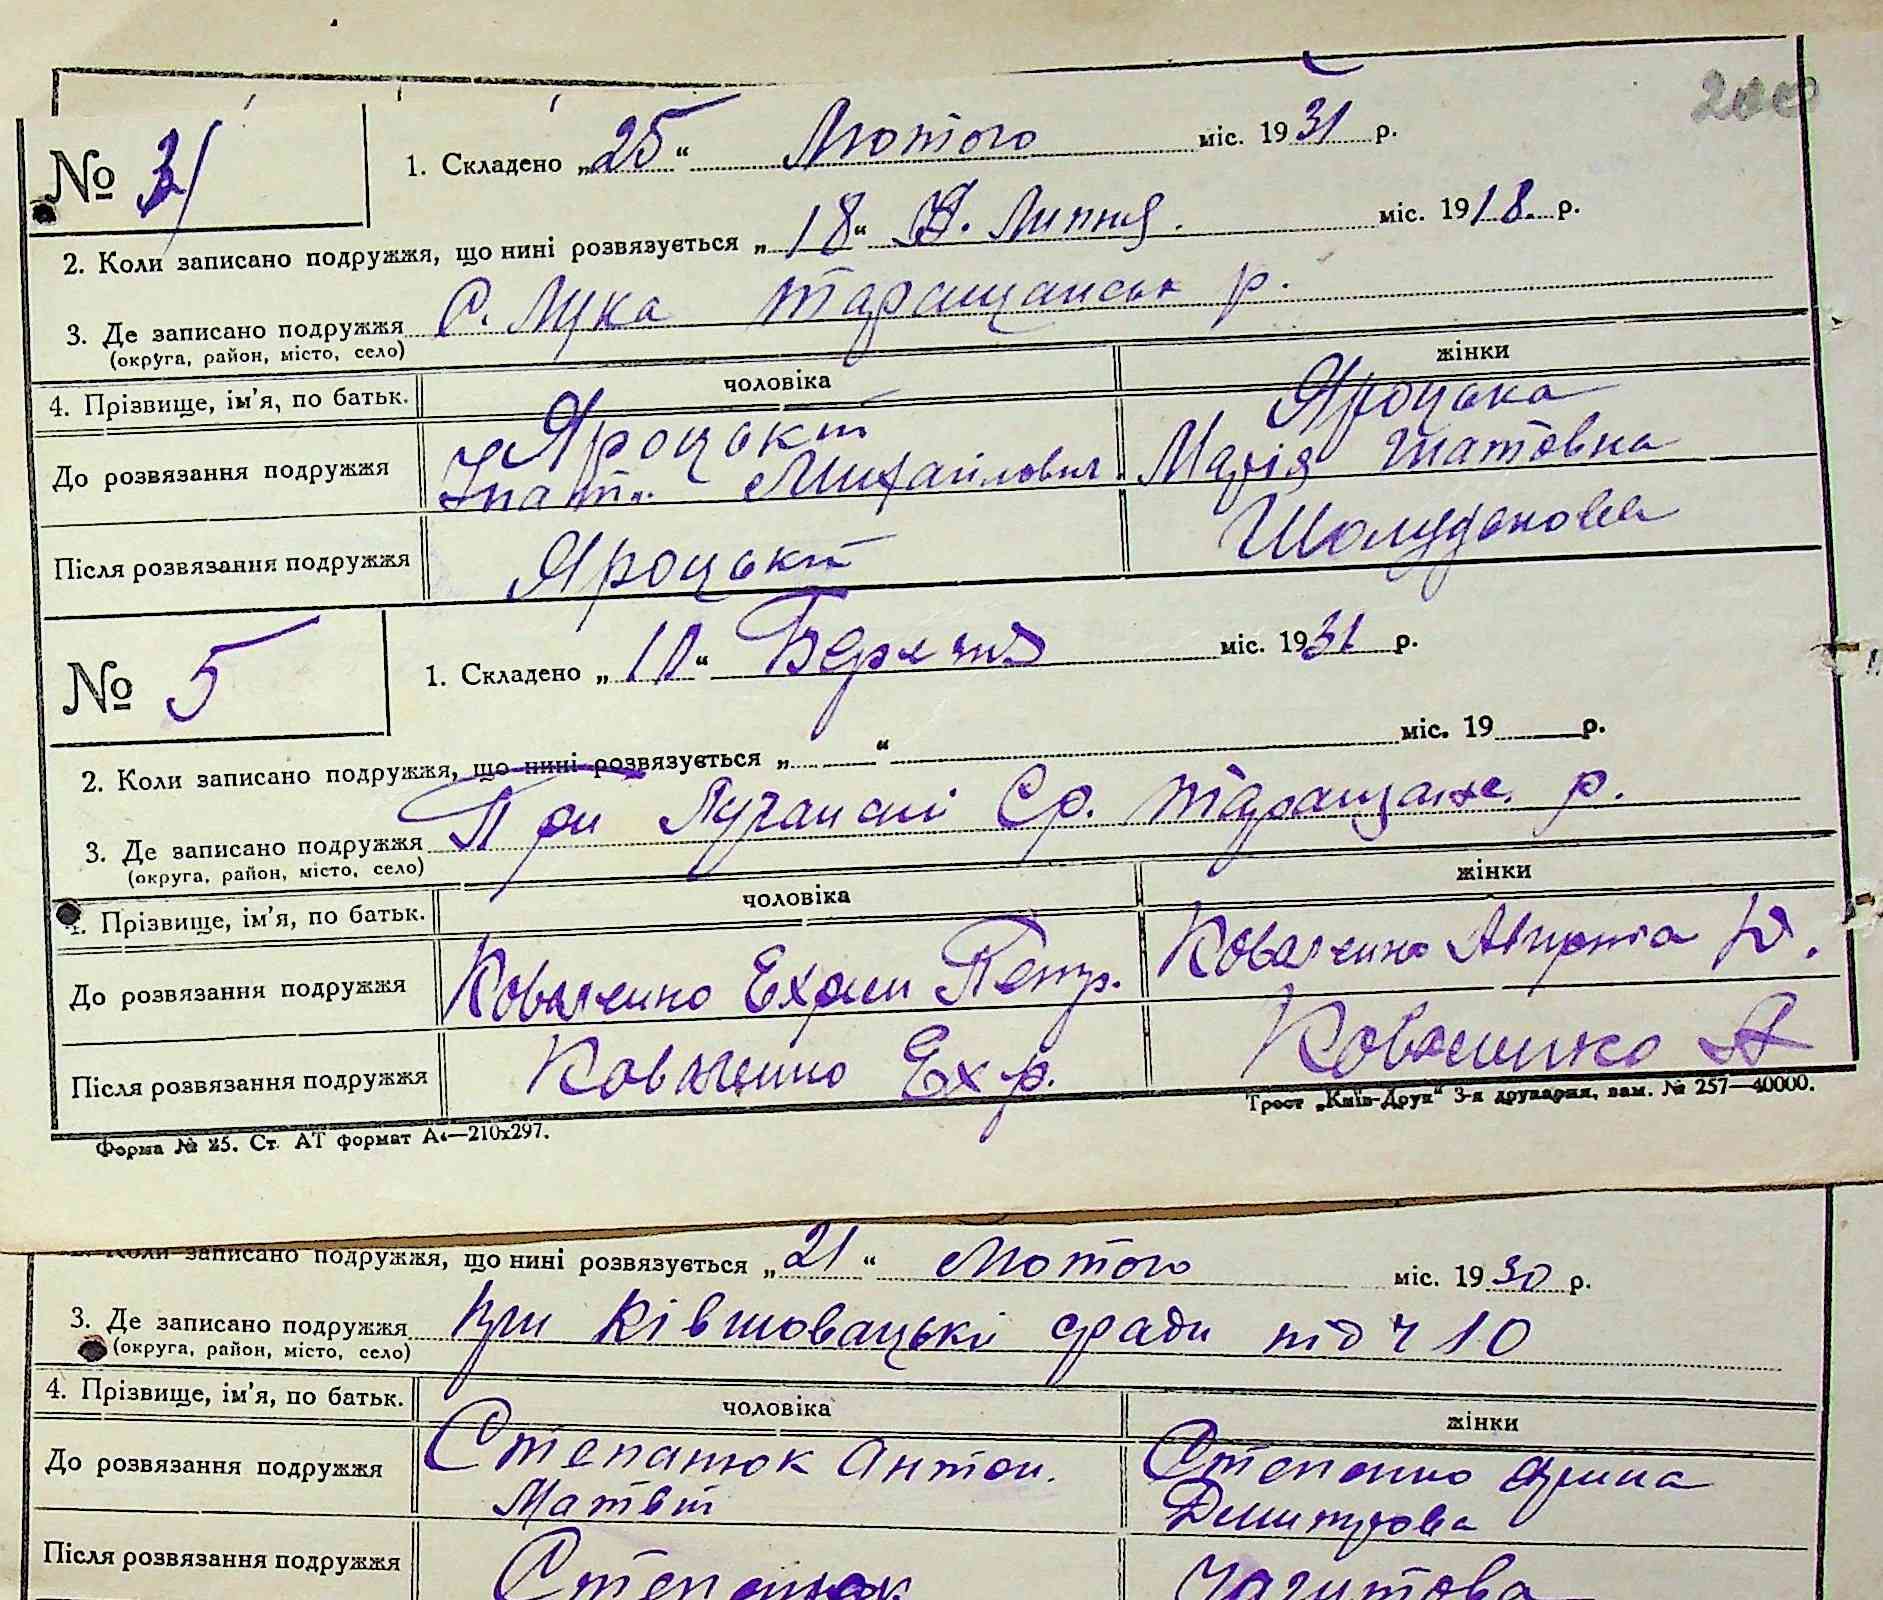 200
№ 3
1. Складено „25“ Лютого міс. 1931 р.
2. Коли записано подружжя, що нині розвязується „18“ Липня. міс. 1918. р.
3. Де записано подружжя С. Лука Таращанськ р.
(округа, район, місто, село)
4. Прізвище, ім'я, по батьк. чоловіка жінки
Яроцький Яроцька
До розвязання подружжя Ігнат. Михайлович. Марія
Після розвязання подружжя Яроцький Шолуденкова
№ 5
1. Складено „10“ Березня міс. 1931 р.
2. Коли записано подружжя, що нині розвязується „ “ міс. 19 р.
3. Де записано подружжя При Лучанскі Ср. Таращанс. р.
(округа, район, місто, село)
4. Прізвище, ім'я, по батьк. чоловіка жінки
До розвязання подружжя Коваленко Ехрем Петр. Коваленко Ю.
Після розвязання подружжя Коваленко Ехр. Коваленко А
Форма № 25. Ст. АТ формат А4—210х297. Трест „Київ-Друк“ 3-я друкарня, зам. № 257—40000.
2. Коли записано подружжя, що нині розвязується „21“ Лютого міс. 1930 р.
3. Де записано подружжя при Ківшовацькі сради під ч 10
(округа, район, місто, село)
4. Прізвище, ім'я, по батьк. чоловіка жінки
До розвязання подружжя Степанюк Антон. Ярина
Матвій Дмитрова
Після розвязання подружжя Степанюк